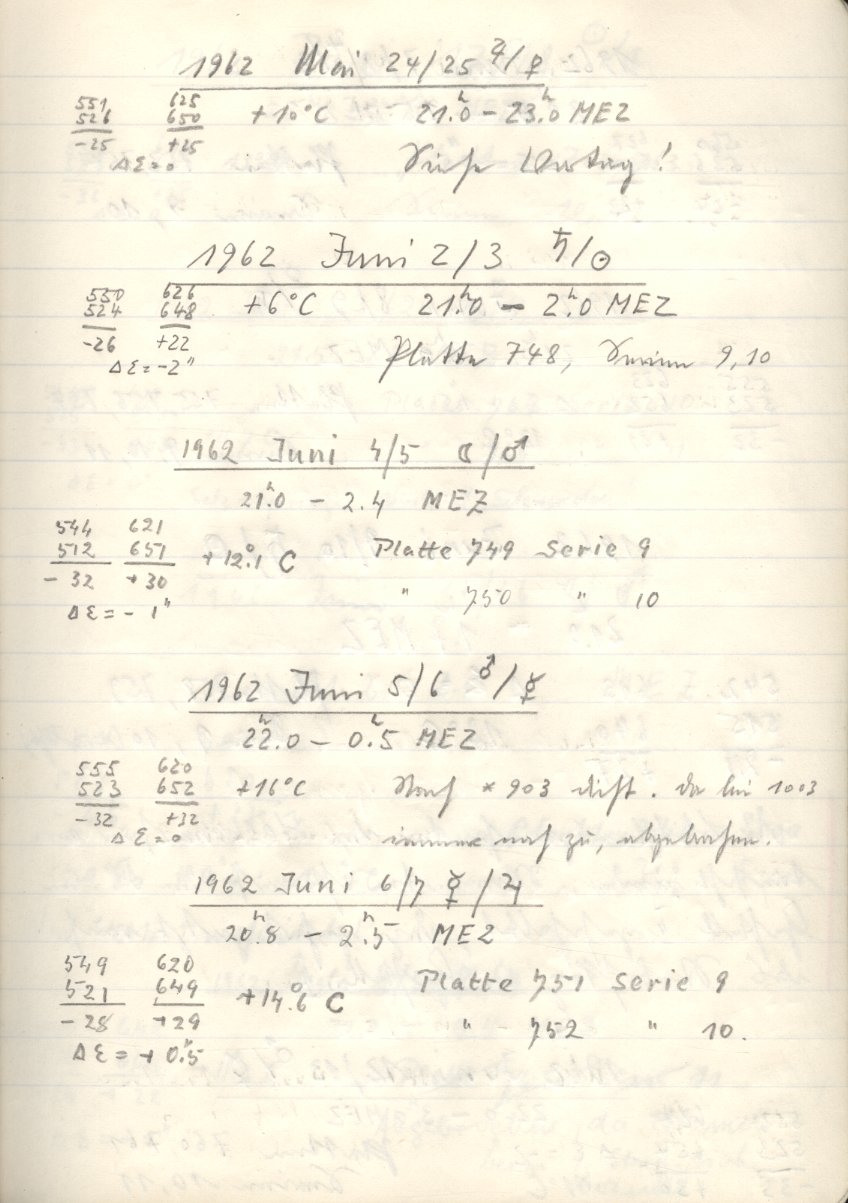 1962 Mai 24/25 ♃/♀
551 625 +10°C 21.ʰ0 – 23.ʰ0 MEZ
526 650
-25 +25 Siehe Vortag!
Δε=0
1962 Juni 2/3 ♄/☉
550 626 +6°C 21.ʰ0 – 2.ʰ0 MEZ
524 648
-26 +22 Platte 748, Serien 9,10
Δε=-2"
1962 Juni 4/5 ☾/♂
21.ʰ0 – 2.4 MEZ
544 621
512 651 +12.°1 C Platte 749 Serie 9
- 32 + 30 " 750 " 10
Δε = - 1"
1962 Juni 5/6 ♂/☿
22.ʰ0 – 0.ʰ5 MEZ
555 620
523 652 +16°C Nach * 903 dicht. da bei 1003
-32 +32 immer noch zu, abgebrochen.
Δε=0
1962 Juni 6/7 ☿/♃
20.ʰ8 – 2.ʰ5 MEZ
549 620
521 649 +14.°6 C Platte 751 Serie 9
- 28 +29 " 752 " 10.
Δε = + 0."5